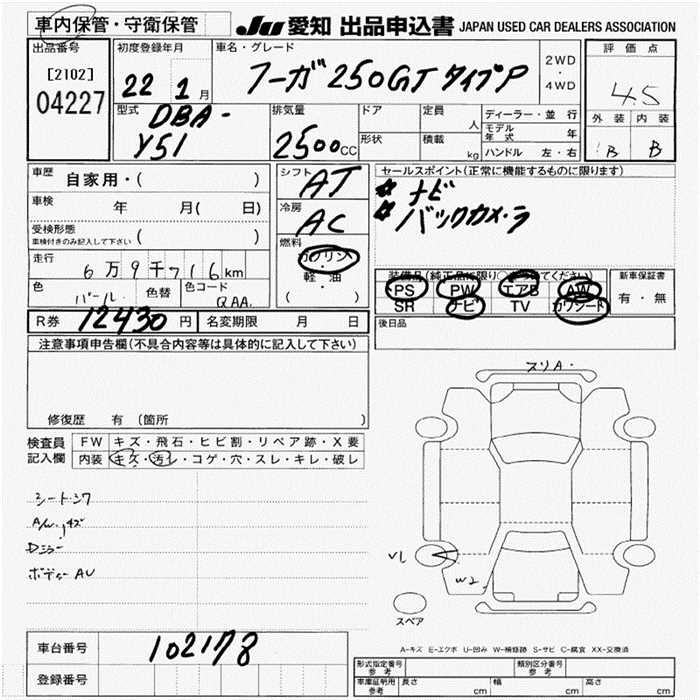 車内保管・守衛保管
JU 愛知 出品申込書 JAPAN USED CAR DEALERS ASSOCIATION
出品番号
[2102]
04227
初度登録年月
22 1月
車名・グレード
フーガ 250GT タイプP
2WD
・
4WD
評価点
4.5
外装 内装
B B
型式
DBA-
Y51
排気量
2500cc
ドア
形状
定員
人
積載
kg
ディーラー・並行
モデル年式 年
ハンドル 左・右
車歴 自家用・( )
車検 年 月( 日)
受検形態
車検付きのみ記入して下さい ( )
走行
6万9千716km
色 パール 色替 色コード QAA
シフト
AT
冷房
AC
燃料
ガソリン
・
軽・油
( )
セールスポイント(正常に機能するものに限ります)
ナビ
バックカメラ
装備品(純正品に限り○をつけてください)
PS PW エアB AW
SR ナビ TV カワシート
新車保証書
有・無
R券 12430円 名変期限 月 日
後日品
注意事項申告欄(不具合内容等は具体的に記入して下さい)
修復歴 有 (箇所 )
検査員
記入欄
FW キズ・飛石・ヒビ割・リペア跡・X要
内装 キズ・汚レ・コゲ・穴・スレ・キレ・破レ
シートシワ
A/W キズ
ボディー AU
スリA
W2
スペア
A-キズ E-エクボ U-凹み W-補修跡 S-サビ C-腐食 XX-交換済
車台番号 102178
登録番号
形式指定番号
参考
類別区分番号
参考
車庫証明用
参考
長さ cm 幅 cm 高さ cm